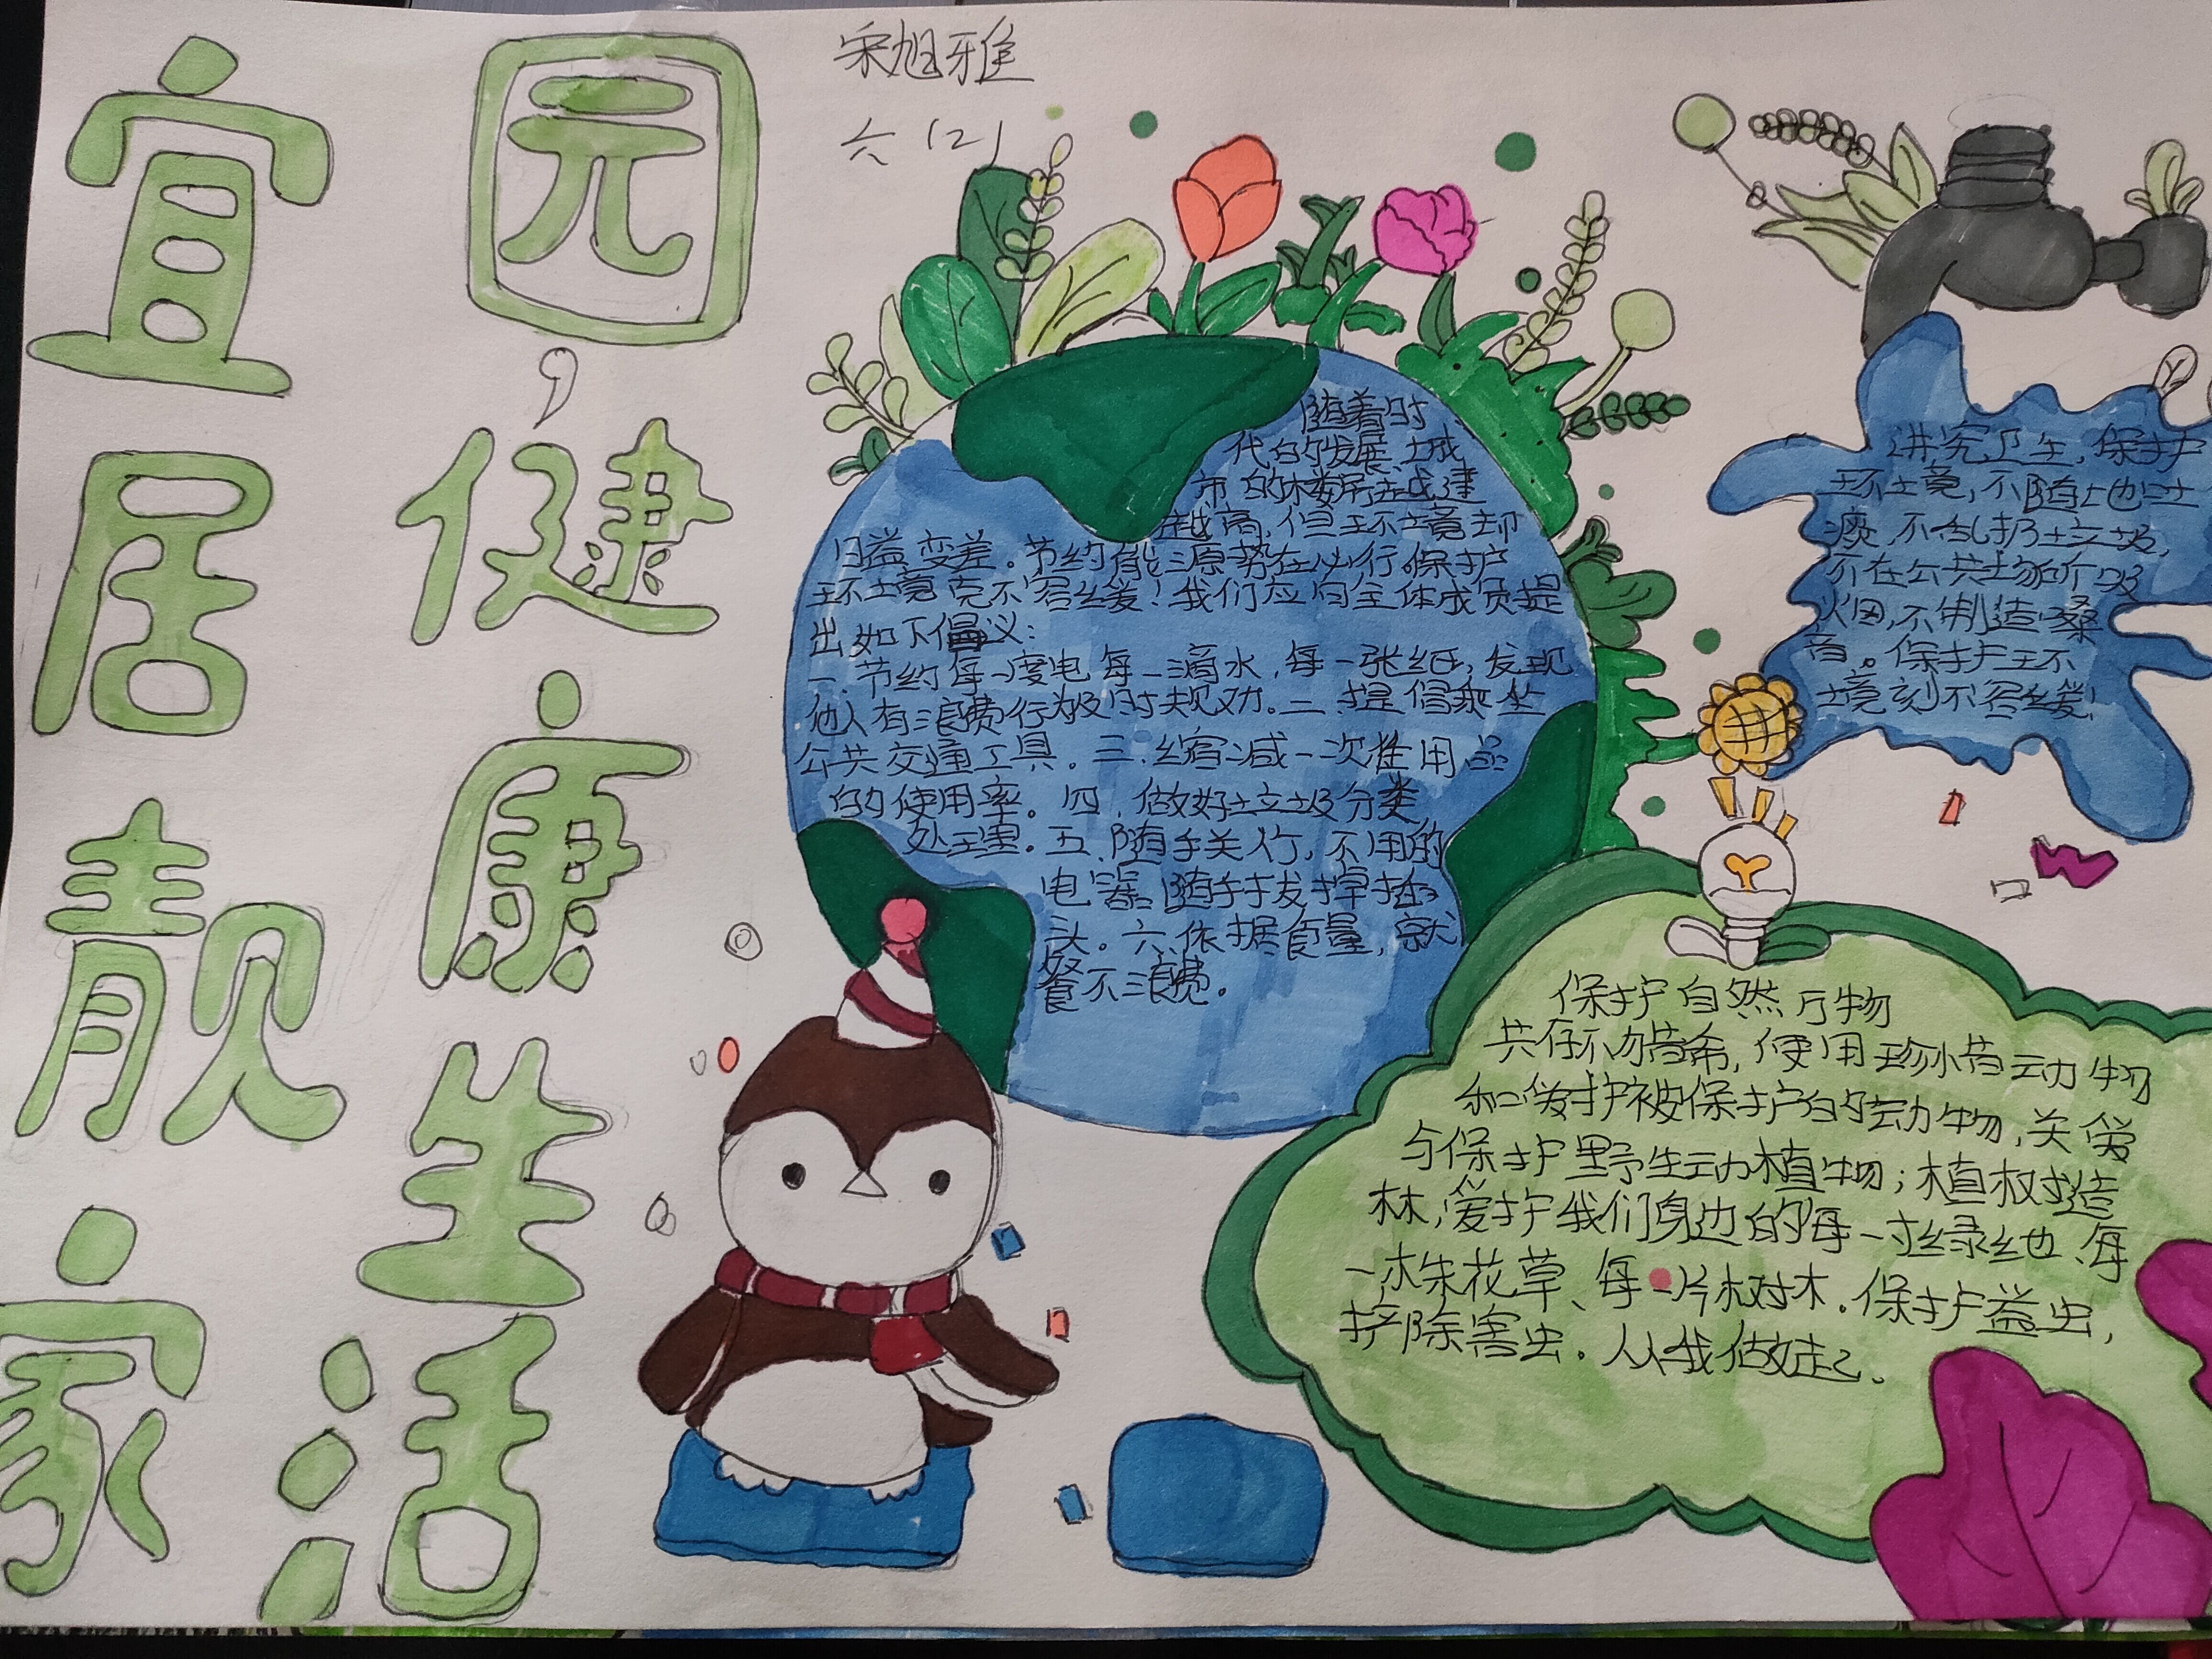 宜居靓家
园,健康生活
宋旭雅
六(2)
随着时
代的发展,城
市的楼房越建
越高,但环境却
日益变差。节约能源势在必行。保护
环境克不容缓!我们应向全体成员提
出如下倡议:
一.节约每一度电,每一滴水,每一张纸,发现
他人有浪费行为及时规劝。二.提倡乘坐
公共交通工具。三.缩减一次性用品
的使用率。四.做好垃圾分类,
处理。五.随手关灯,不用的
电器随手拔掉插
头。六.依据食量,就
餐不浪费。
讲究卫生,保护
环境,不随地吐
痰,不乱扔垃圾,
不在公共场所吸
烟,不制造噪
音。保护环
境刻不容缓!
保护自然万物
共存不勿猎
动物
和爱护被保护的动物,关爱
与保护野生动植物;植树造
林,爱护我们身边的每一寸绿地、每
一株花草、每一片树木。保护益虫,
拧除害虫。从我做起、